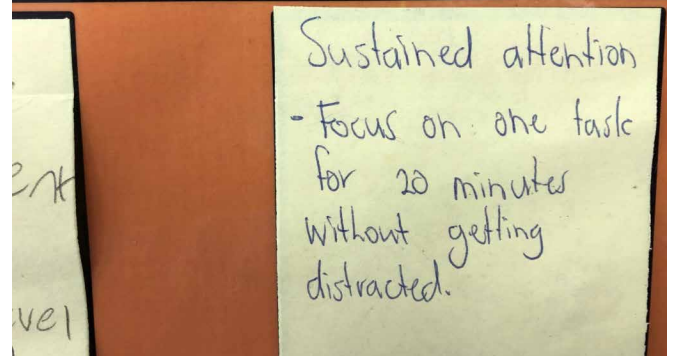 Sustained attention
- Focus on one task
for 20 minutes
without getting
distracted.